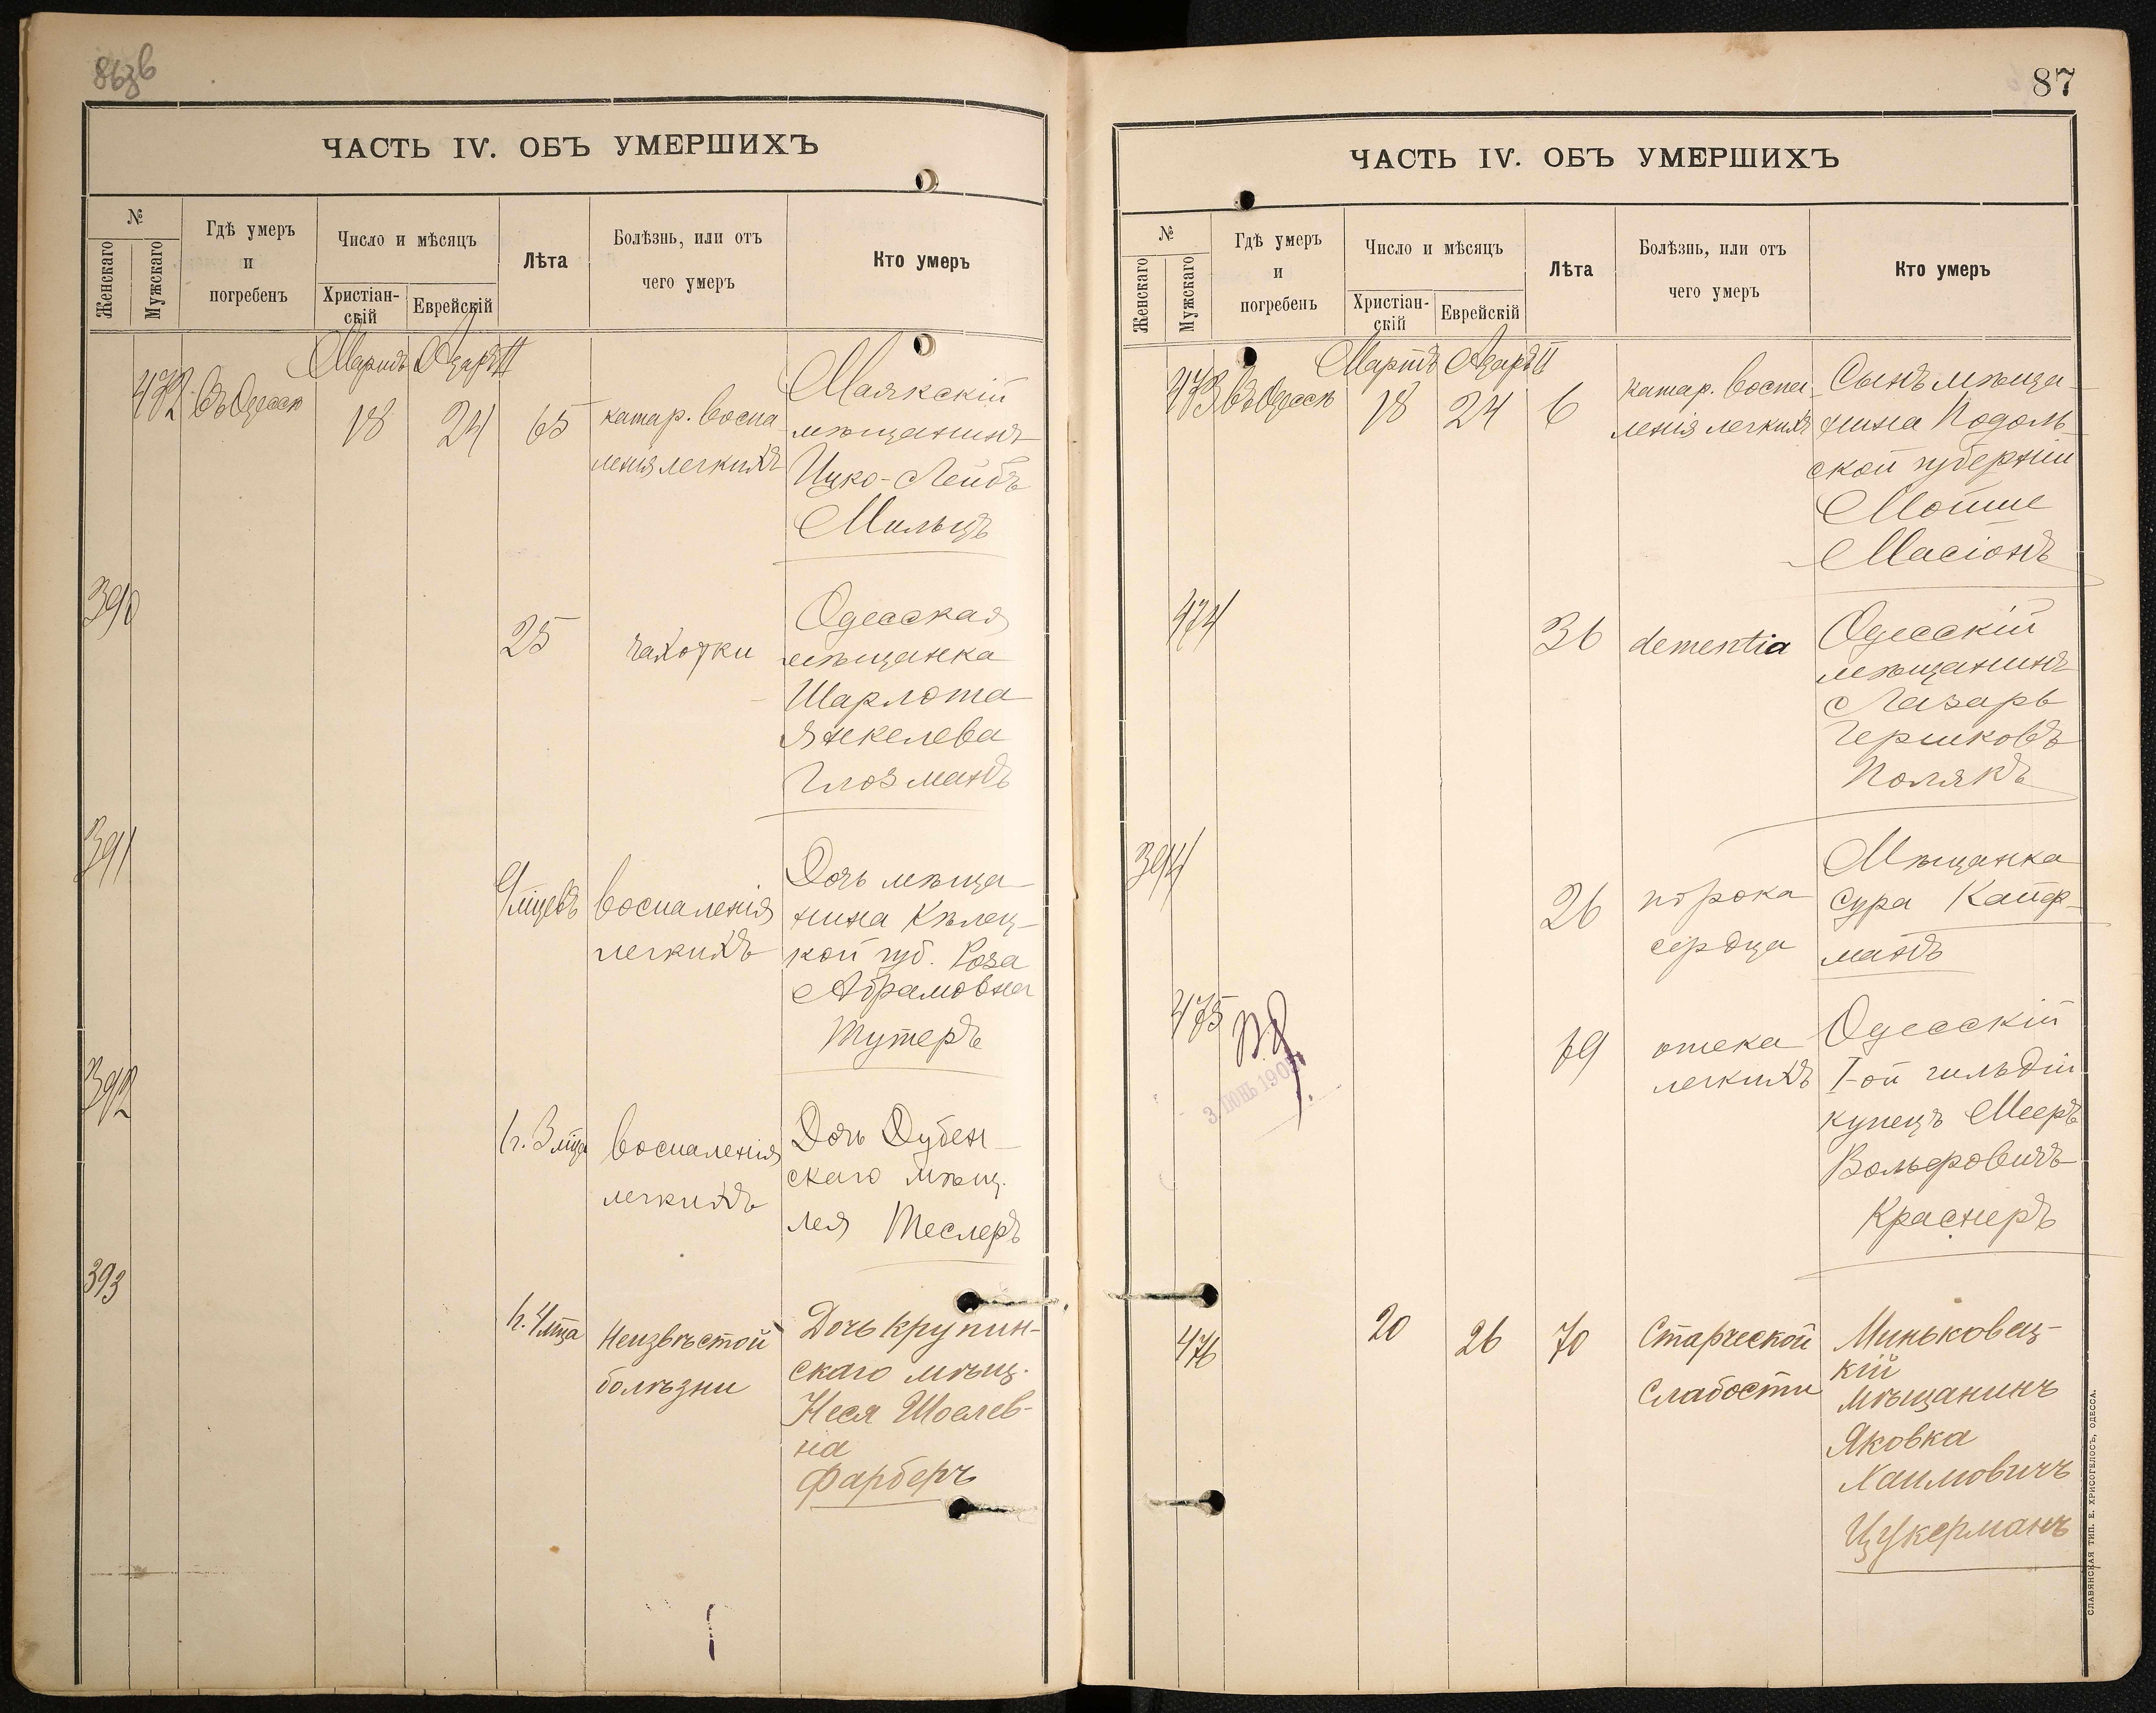 ЧАСТЬ IV. ОБЪ УМЕРШИХЪ
№
Женскаго
Мужскаго
Гдѣ умеръ
и
погребенъ
Число и мѣсяцъ
Христіан-
скій
Еврейскій
Лѣта
Болѣзнь, или отъ
чего умеръ
Кто умеръ
Мартъ Адаръ II
472 въ Одессѣ 18 24 65
катар. воспа-
ленія легкихъ
Маякскій
мѣщанинъ
Ицко-Лейбъ
Мильцъ
390
25
чахотки
Одесская
мѣщанка
Шарлота
Янкелева
Глозманъ
391
9 мцевъ
воспаленія
легкихъ
Дочь мѣща-
нина Кѣлец-
кой губ. Роза
Абрамовна
Тутеръ
392
1 г. 3 мца
воспаленія
легкихъ
Дочь Дубен-
скаго мѣщ.
Лея Теслеръ
393
1 г. 4 мца
Неизвѣстой
болѣзни
Дочь крупин-
скаго мѣщ.
Неся Шоелев-
на
Фарберъ
87
ЧАСТЬ IV. ОБЪ УМЕРШИХЪ
№
Женскаго
Мужскаго
Гдѣ умеръ
и
погребенъ
Число и мѣсяцъ
Христіан-
скій
Еврейскій
Лѣта
Болѣзнь, или отъ
чего умеръ
Кто умеръ
Мартъ Адаръ II
473 въ Одессѣ 18 24 6
катар. воспа-
ленія легкихъ
Сынъ мѣща-
нина Подоль-
ской губерніи
Мойше
Масіонъ
474
36
dementia
Одесскій
мѣщанинъ
Лазарь
Гершковъ
Полякъ
394
26
порока
сердца
Мѣщанка
Сура Кауф-
манъ
475
69
отека
легкихъ
Одесскій
I-ой гильдіи
купецъ Мееръ
Вольфовичъ
Краснеръ
3 ІЮНЬ 190
476
20 26 70
Старческой
Слабости
Миньковец-
кій
мѣщанинъ
Яковка
Хаимовичъ
Цукерманъ
СЛАВЯНСКАЯ ТИП. Е. ХРИСОГЕЛОСЪ, ОДЕССА.